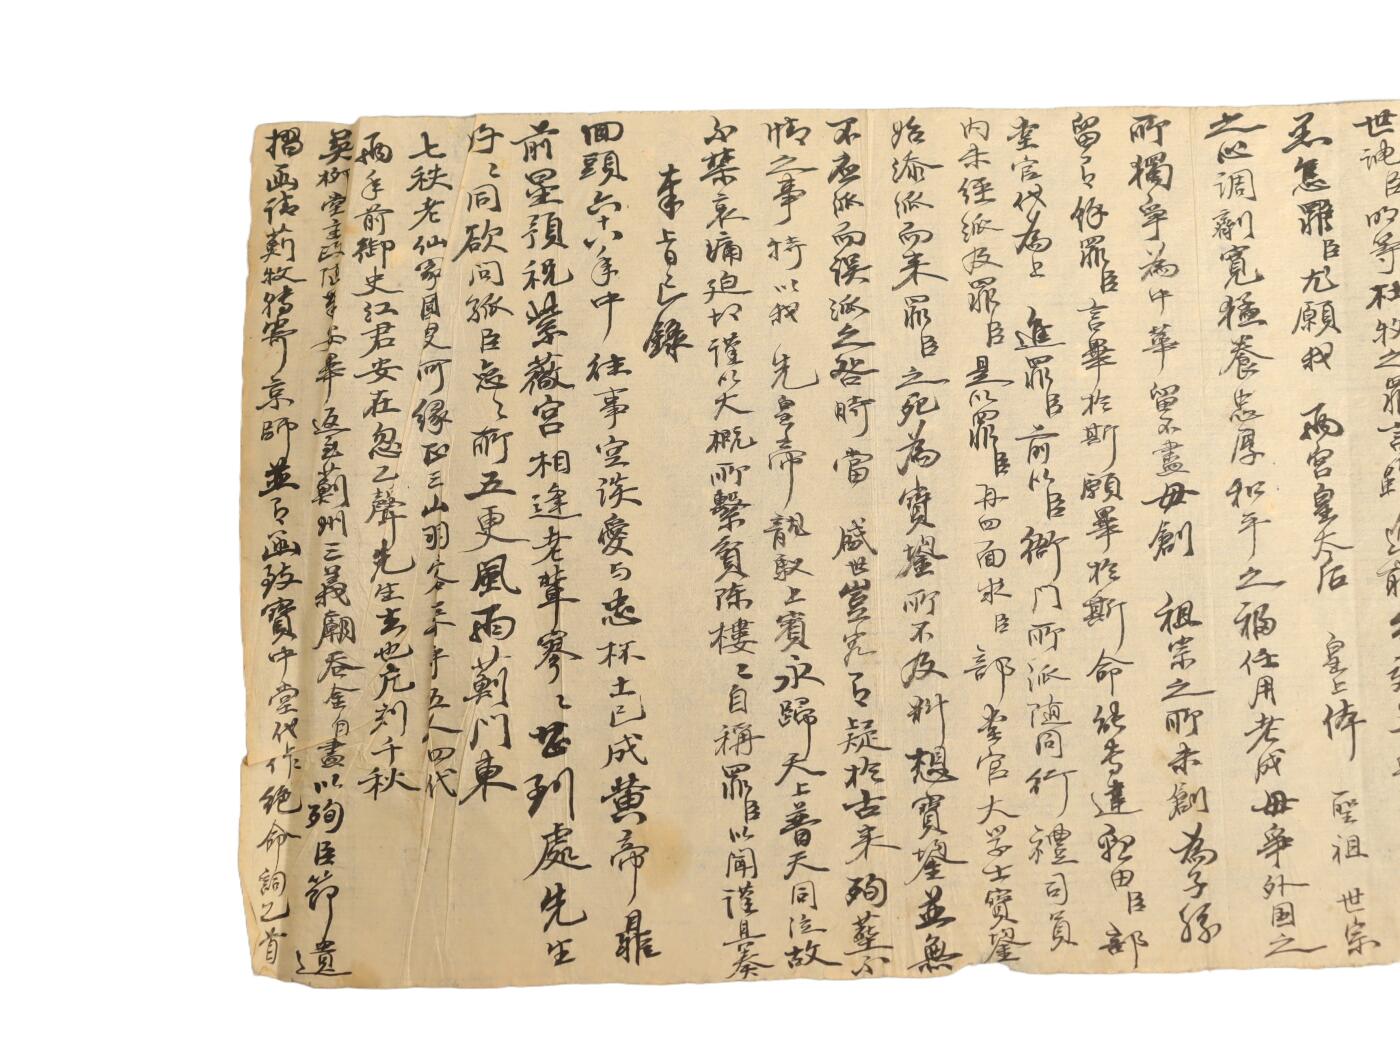 世誅臣昭等杜牧之罪言
恙怠罪臣尤願我 兩宮皇太后 皇上体 聖祖 世宗
之心調劑寬猛養忠厚和平之福任用老成毋爭外国之
所獨爭為中華留不盡毋創 祖宗之所未創為子孫
留有餘罪臣言畢於斯願畢於斯命能畢於斯由臣部
堂官代為上 進罪臣前以臣衙門所派隨同行禮司員
內未經派及罪臣是以罪臣再四面求臣部堂官大学士寶鋆
始添派而来罪臣之死為寶鋆所不及料想寶鋆並無
不應派而誤派之咎時當 盛世豈容有疑於古来殉葬不
情之事特以我 先皇帝龍馭上賓永歸天上普天同泣故
不禁哀痛迫切謹以大概所繫貪陳樓〻自稱罪臣以聞謹具奏
奉旨已錄
回頭六十八年中 往事空談愛与忠 杯土已成黄帝鼎
前星預祝紫薇宮 相逢老輩寥〻甚 到處先生
好〻同 欲問孤臣戀〻所 五更風雨薊門東
七秩老仙家 四代
兩年前御史江君安在忽乙聲先生去也 片刻千秋
吳柳堂主政 返至薊州三義廟吞金自盡以殉臣節遺
摺函請薊牧转寄京師並有函致寶中堂代作绝命詞乙首